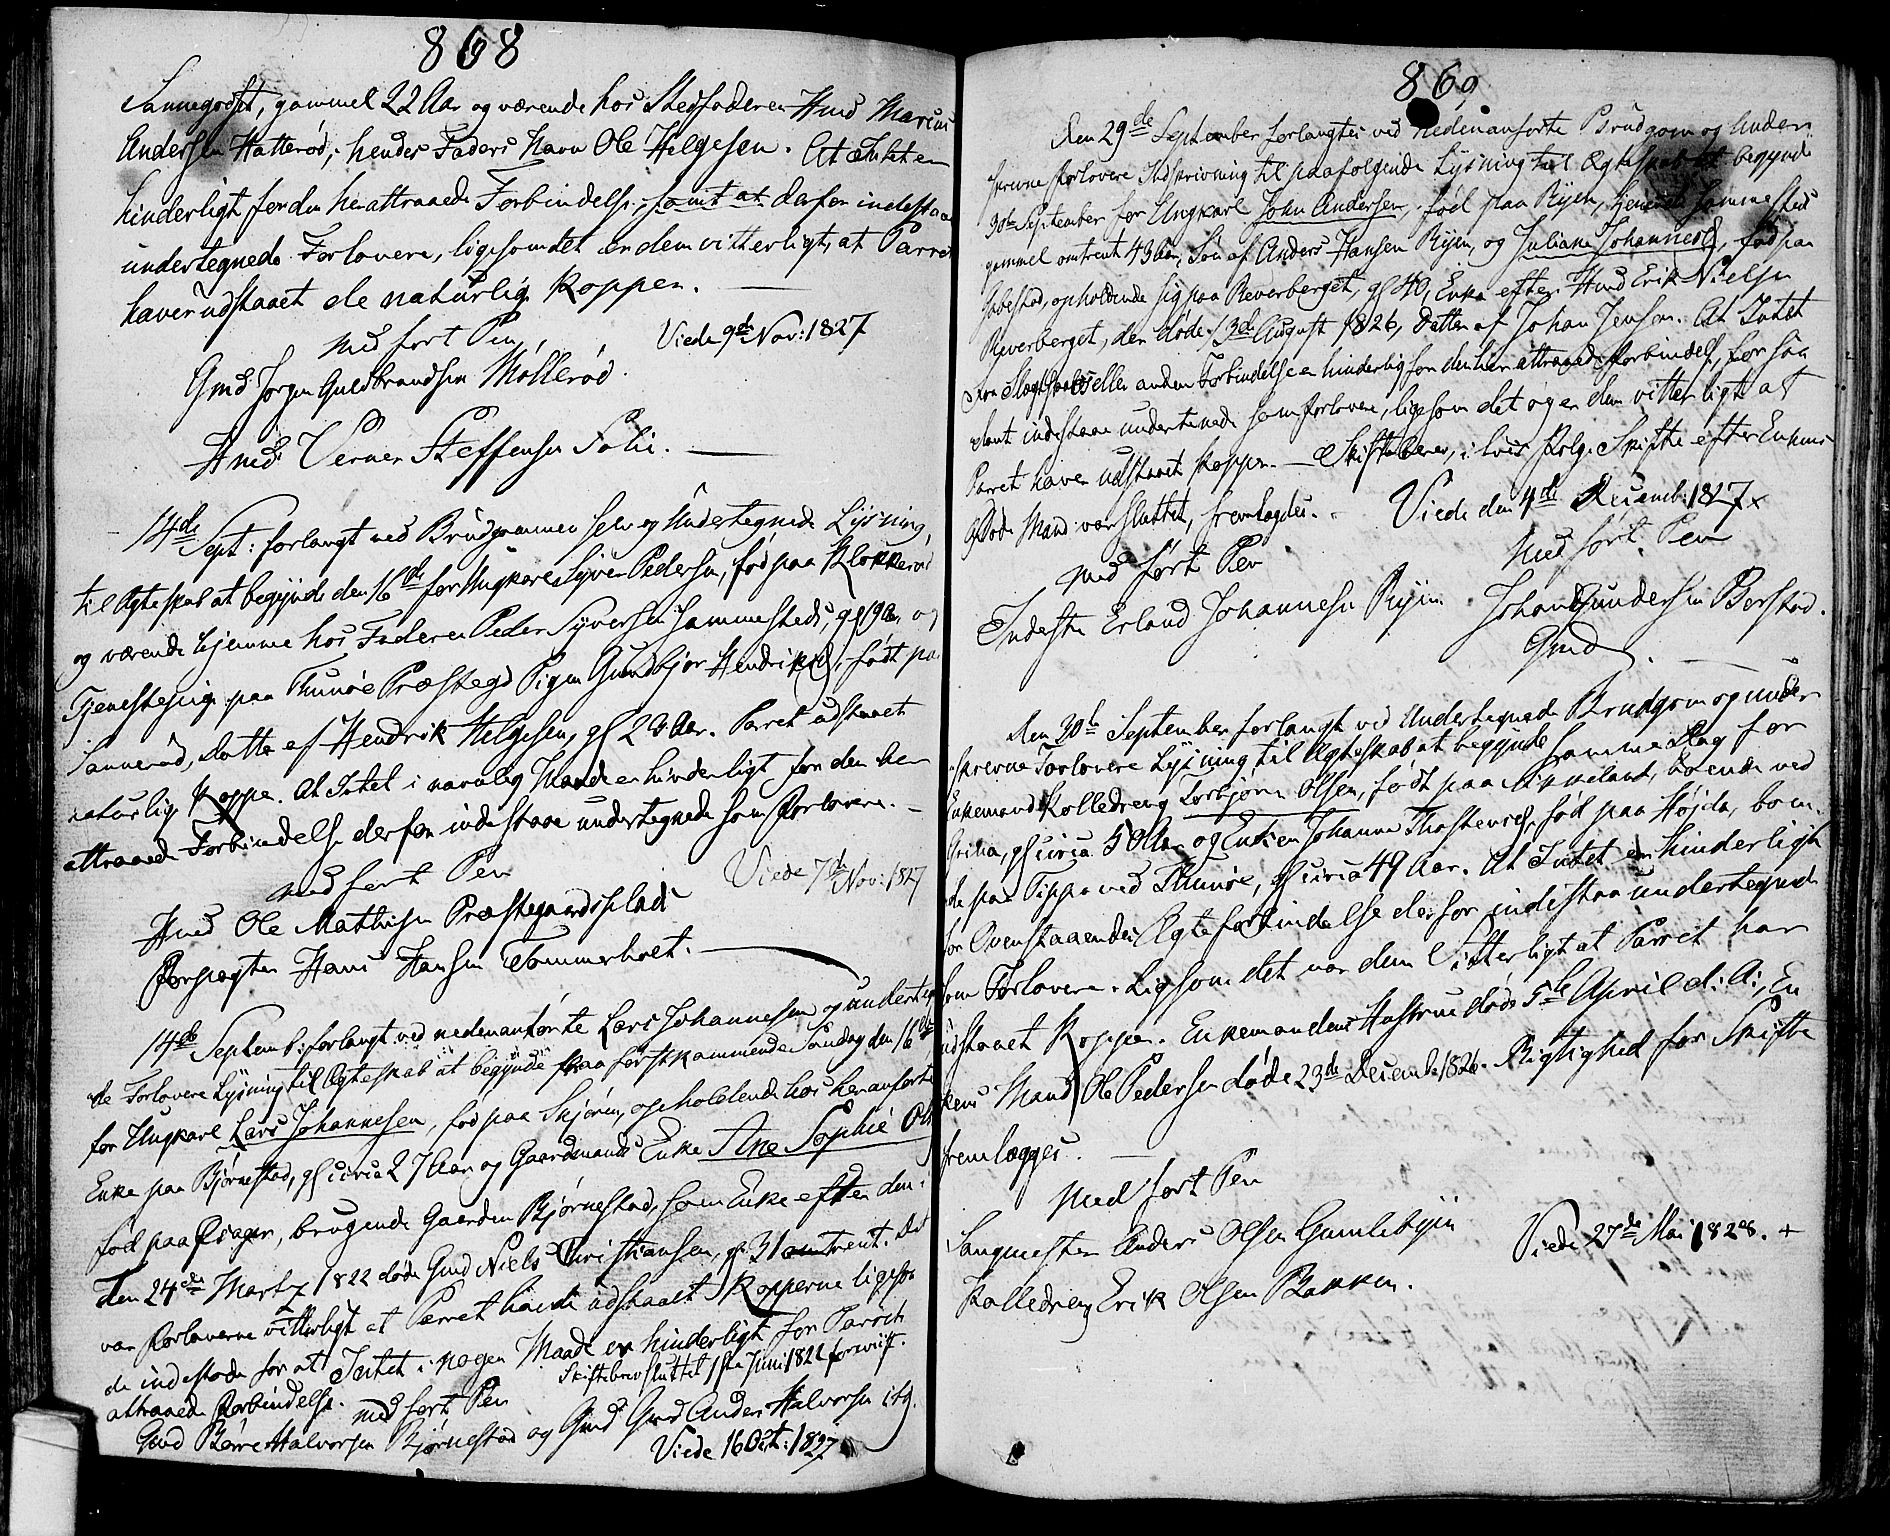 868
Sannegodset, gammel 22 Aar og værende hos Stedfaderen Hmd Marcus
Andersen Hatterød; hendes Faders Navn Ole Helgesen. At Intet er
hinderligt for den her attraaede Forbindelse, samt at derfor indestaae
undertegnede Forlovere, ligesom det er dem vitterligt, at Parret
haver udstaaet de naturlige Kopper. —
med ført Pen, Viede 9de Nov: 1827
Gmd Jørgen Guldbrandsen Møllerød.
Hmd Verner Steffensen Solie. —
14de Sept: forlangt ved Brudgommen selv og Undertegnede Lysning
til Ægteskab at begynde den 16de for Ungkarl Syver Pedersen, fød paa Klokkerød
og værende hjemme hos Faderen Peder Syversen sammesteds, gl 19 Aar, og
Tjenestepige paa Thunøe Præstegd Pigen Gunbjør Hendriksd, født paa
Sannerød, Datter af Hendrik Helgesen, gl 28 Aar. Parret udstaaet
naturlig Kopper. At Intet i navnlig Maade er hinderligt for den her
attraaede Forbindelse derfor indestaae undertegnede som Forlovere. —
med ført Pen Viede 7de Nov: 1827
Hmd Ole Mathisen Præstegaardsplads
Forpagter Hans Hansen Tømmerholt. —
14de Septemb: forlangt ved nedenanførte Lars Johannesen og undertegne
de Forlovere Lysning til Ægteskab at begynde paa førstkommende Søndag den 16de
for Ungkarl Lars Johannesen, fød paa Skjøren, opholdende hos heranførte
Enke paa Bjørnestad, gl circa 27 Aar og Gaardmands Enke Ane Sophie Ols
fød paa Qvager, brugende Gaarden Bjørnestad, som Enke efter den i
den 24de Martz 1822 døde Gmd Niels Christiansen, gl 31 omtrent. Det
var Forloverne vitterligt at Parret havde udstaaet Kopperne ligesom
de indestode for at Intet i nogen Maade er hinderligt for Parrets
attraaede Forbindelse. Skiftebrev sluttet 1ste Juni 1822 foreviist.
med ført Pen
Gmd Børre Halvorsen Bjørnestad og Gmd Anders Halvorsen ibd.
Viede 16 Oct: 1827
869
Den 29de September forlangtes ved nedenanførte Brudgom og Under
skrevne Forlovere Indskrivning til paafølgende Lysning til Ægteskab at begynde
30te September for Ungkarl John Andersen, fød paa Ryen, hjemme sammesteds
gammel omtrent 43 Aar, Søn af Anders Hansen Ryen, og Juliane Johannesd, fød paa
Gabestad, opholdende sig paa Reverberget, gl 40, Enke efter Hmd Erik Nielsen
Reverberget, der døde 13de August 1826, Datter af Johan Jensen. At Intet
Slægtskabs eller anden Forbindelse er hinderlig for den her attraaede Forbindelse, for saa
dant indestaae undertegnede som Forlovere, ligesom det og er dem vitterligt at
Parret haver udstaaet Kopper. — Skiftebrev, i hvis Følge Skifte efter Enkens
døde Mand var sluttet, fremlagdes. — Viede den 4de Decemb: 1827 x
med ført Pen med ført Pen
Inderste Erland Johannesen Ryen. Johan Gundersen Berstad.
Gmd. —
Den 30te September forlangt ved Undertegnede Brudgom og under
skrevne Forlovere Lysning til Ægteskab at begynde samme Dag for
Enkemand Kolledreng Torbjørn Olsen, født paa Minneland, boende ved
gl circa 50 Aar og Enken Johanne Thostensd, fød paa Højda, boen
de paa Tippa ved Thunøe, gl circa 49 Aar. At Intet er hinderligt
for Ovenstaaendes Ægteforbindelse derfor indestaae undertegnede
som Forlovere. Ligesom det var dem Vitterligt at Parret har
udstaaet Kopper. Enkemandens Hustrue døde 5te April d: A:, En
kens Mand Ole Pedersen døde 23de Decemb 1826. Rigtighed for Skifte
fremlægges. —
med ført Pen
Sangmester Anders Olsen Gamlebyen Viede 27de Mai 1828. +
Kolledreng Erik Olsen Bakken.